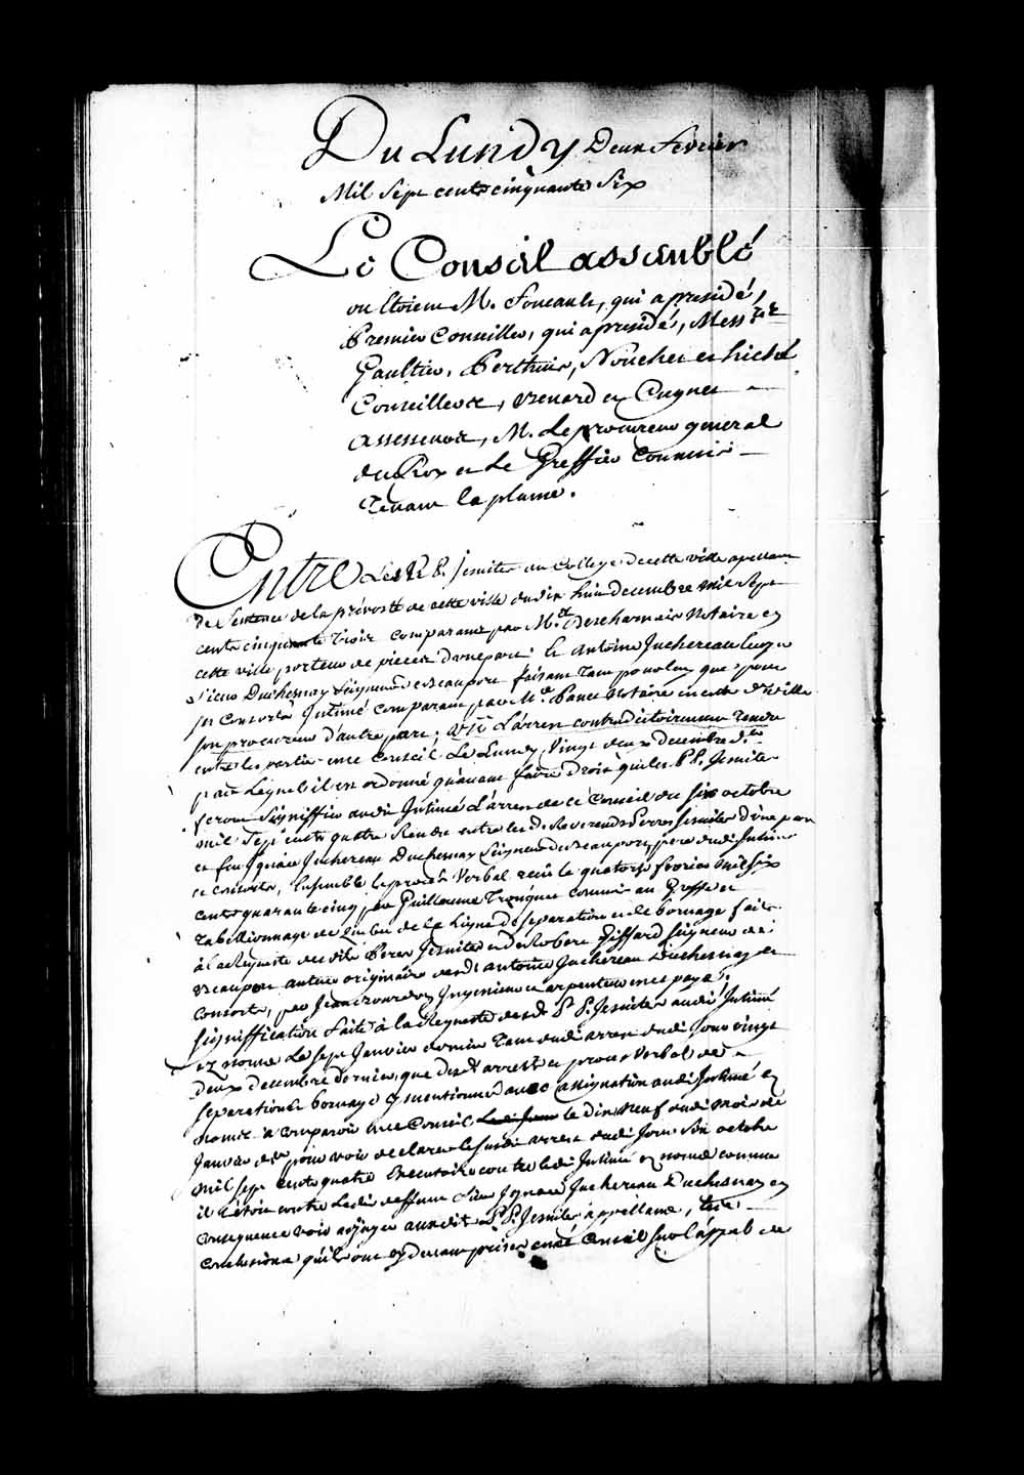 Du Lundy Deux Fevrier
Mil Sept cents cinquante Six
Le Conseil assemblé
ou étoient M. Foucault, qui a presidé,
Premier Conseiller, qui a presidé, Mess.rs
Gaultier, Perthuis, Nouchet et hiché
Conseillers, Benard et Cugnet
Assesseurs, M. Le procureur general
du Roy et Le Greffier Commis
Tenant la plume.
Entre Les R. P. Jesuites au College de cette ville apellans
de Sentence de la prévosté de cette ville du dix huit decembre mil Sept
cents cinquante trois comparant par M.e Decharnay Notaire en
cette ville porteur de pieces d'une part; Et Antoine Juchereau Ecuyer
Sieur Duchesnay Seigneur de Beauport faisant tant pour luy que pour
ses Consorts Intimé comparant par M.e Panet Notaire en cette d.e ville
son procureur d'autre part; Vû L'arrest contradictoirement rendu
entre les parties en ce Conseil Le Lundy Vingt deux decembre d.er
par Lequel il est ordonné qu'avant faire droit qu'iles P P. Jesuites
feront Signiffier audit Intimé L'arrest de ce Conseil du six octobre
mil Sept cents quatre Rendu entre les d. Reverends Peres Jesuites d'une part
et feu Ignace Juchereau Duchesnay Seigneur de Beauport, pere dudit Intimé
et consorts, Ensemble le procés Verbal du quatorze fevrier mil six
cents quarante cinq par Guillaume Tronquet commis au Greffe et
Tabellionnage de Quebec de la Ligne de separation et de bornage faite
à la Requeste desdits Peres Jesuites et de Robert Giffard Seigneur de
Beauport auteur originaire dudt antoine Juchereau Duchesnay et
Consorts, par Jean Bourdon Ingenieur et arpenteur en ce payé;
signiffication faite à la Requeste desdt P P. Jesuites audit Intimé
ez noms Le Sept Janvier dernier Tant dudit arrest dudit jour vingt
deux decembre dernier, que desdt arrest et procés Verbal de
separation et bornage y mentionnés avec assignation audit Intimé ez
noms à comparoir en ce Conseil le dix neuf audit mois de
Janvier der pour voir declarer le susdit arrest dudit Jour Six octobre
mil sept cents quatre Executoire contre ledit Intimé ez noms comme
il étoit contre Ledit deffunt Sieur Ignace Juchereau Duchesnay en
consequence voir adjuger auxdits P P. Jesuites appellans, les
conclusions qu'ils ont cy devant prises en ce Conseil sur l'appel de